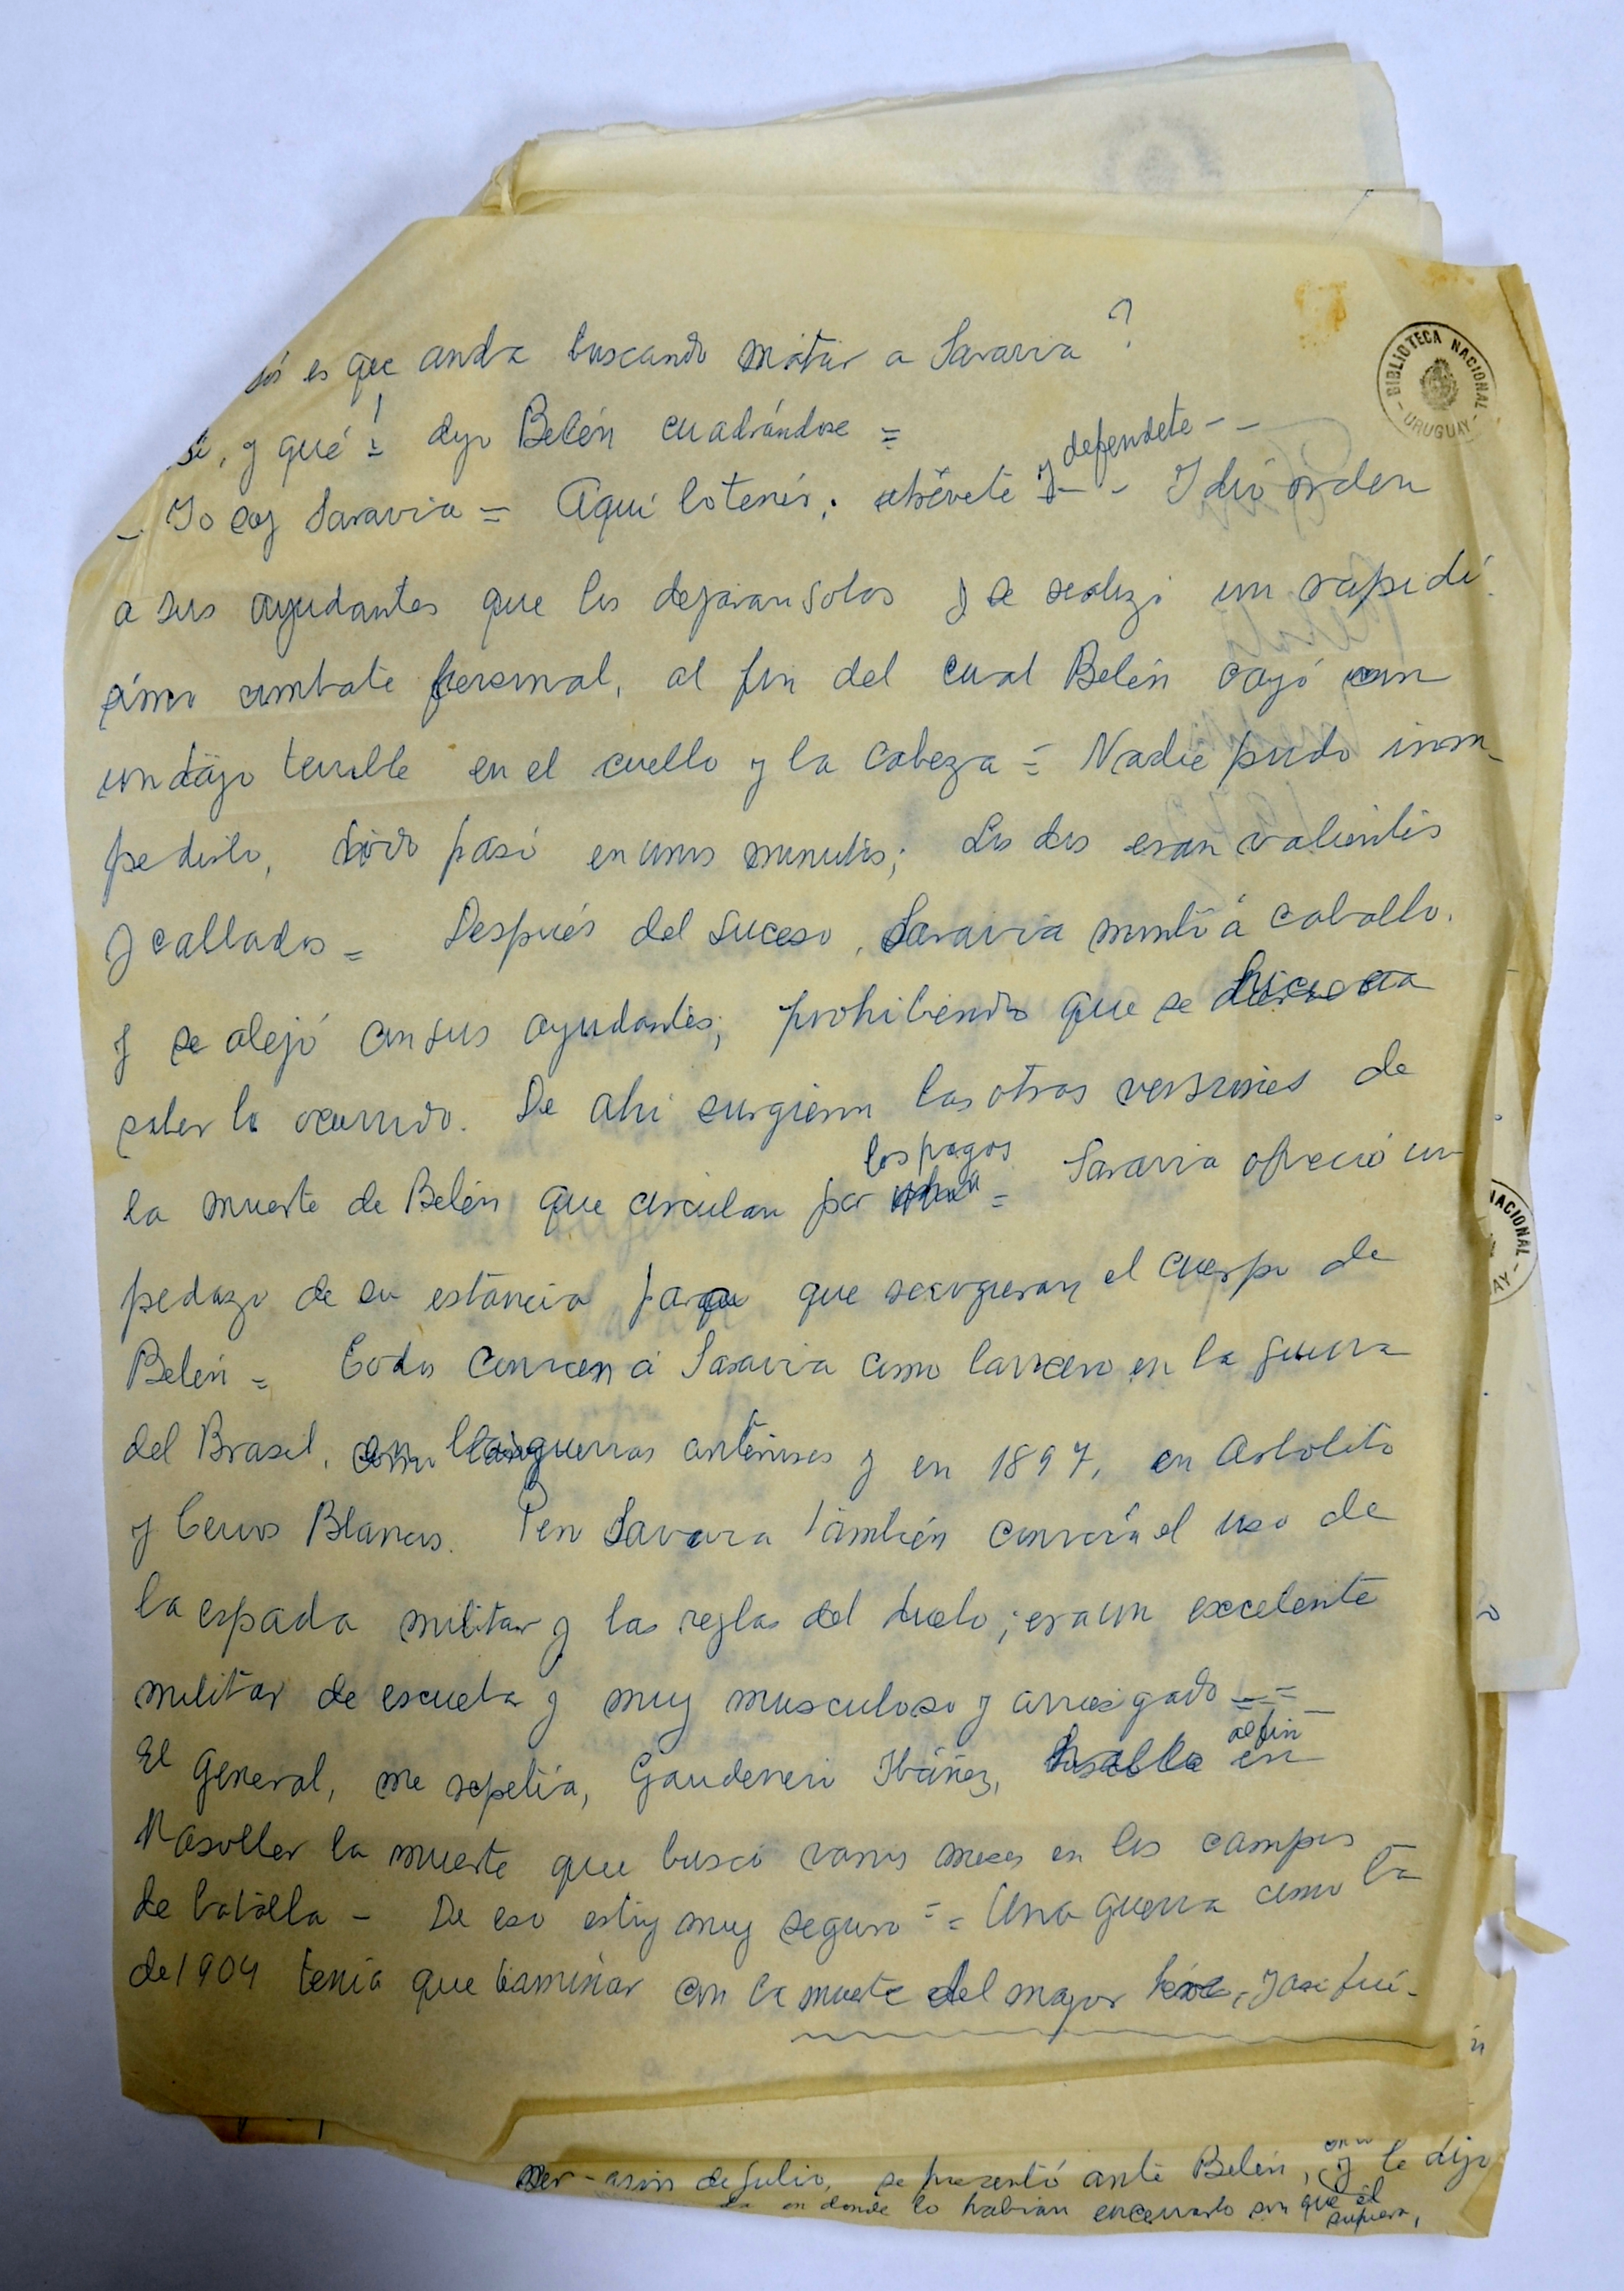 sós es que anda buscando matar a Saravia?
si, y qué! = dijo Belén cuadrándose =
defendete - -
- Yo soy Saravia = Aquí lo tenés; atrévete y - - Y dió orden
a sus ayudantes que los dejaran solos y se realizó un rapidí-
simo combate personal, al fin del cual Belén cayó con
un tajo terrible en el cuello y la cabeza = Nadie pudo im-
pedirlo, todo pasó en unos minutos; Los dos eran valientes
y callados = Después del suceso, Saravia montó á caballo.
y se alejó con sus ayudantes; prohibiendo que se hiciera
saber lo ocurrido. De ahi surgieron las otras versiones de
los pagos
la muerte de Belén que circulan por = Saravia ofreció un
pedazo de su estancia para que recogieran el cuerpo de
Belén = Todos conocen á Saravia como lancero en la guerra
del Brasil, en las guerras anteriores y en 1897, en Arbolito
y Cerros Blancos. Pero Saravia también conocía el uso de
la espada militar y las reglas del duelo; era un excelente
militar de escuela y muy musculoso y arriesgado = =
al fin
El General, me repetía, Gaudencio Ibáñez, halló en
Masoller la muerte que buscó varias veces en los campos
de batalla - De eso estoy muy seguro = = Una guerra como la
de 1904 tenía que terminar con la muerte del mayor héroe, y así fué -
de Julio, se presentó ante Belén, y le dijo
en donde lo habían encerrado sin que él
supiera,
BIBLIOTECA NACIONAL
- URUGUAY -
NACIONAL -
AY